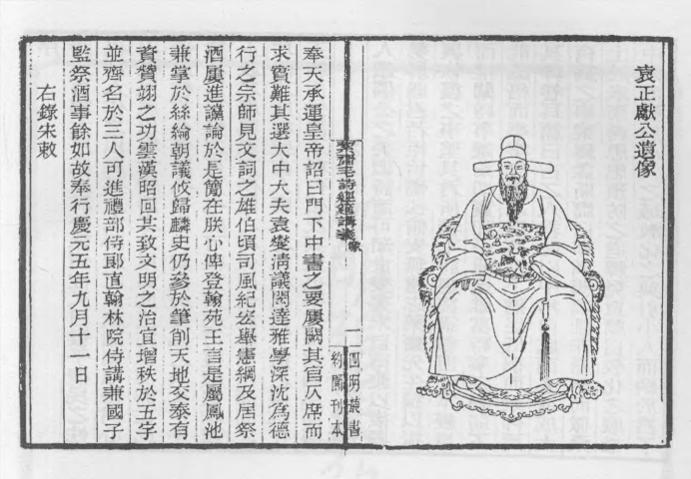 袁正獻公遺像
絜齋毛詩經筵講義 像
一
四明叢書
約園刊本
奉天承運皇帝詔曰門下中書之要屢闕其官仄席而
求賓難其選大中大夫袁燮淸議閎達雅學深沈爲德
行之宗師見文詞之雄伯頃司風紀宏舉憲綱及居祭
酒屢進讜論於是簡在朕心俾登翰苑王言是屬鳳池
兼掌於絲綸朝議攸歸麟史仍參於筆削天地交泰有
資贊翊之功雲漢昭回其致文明之治宜增秩於五字
並齊名於三人可進禮部侍郞直翰林院侍講兼國子
監祭酒事餘如故奉行慶元五年九月十一日
右錄朱敕